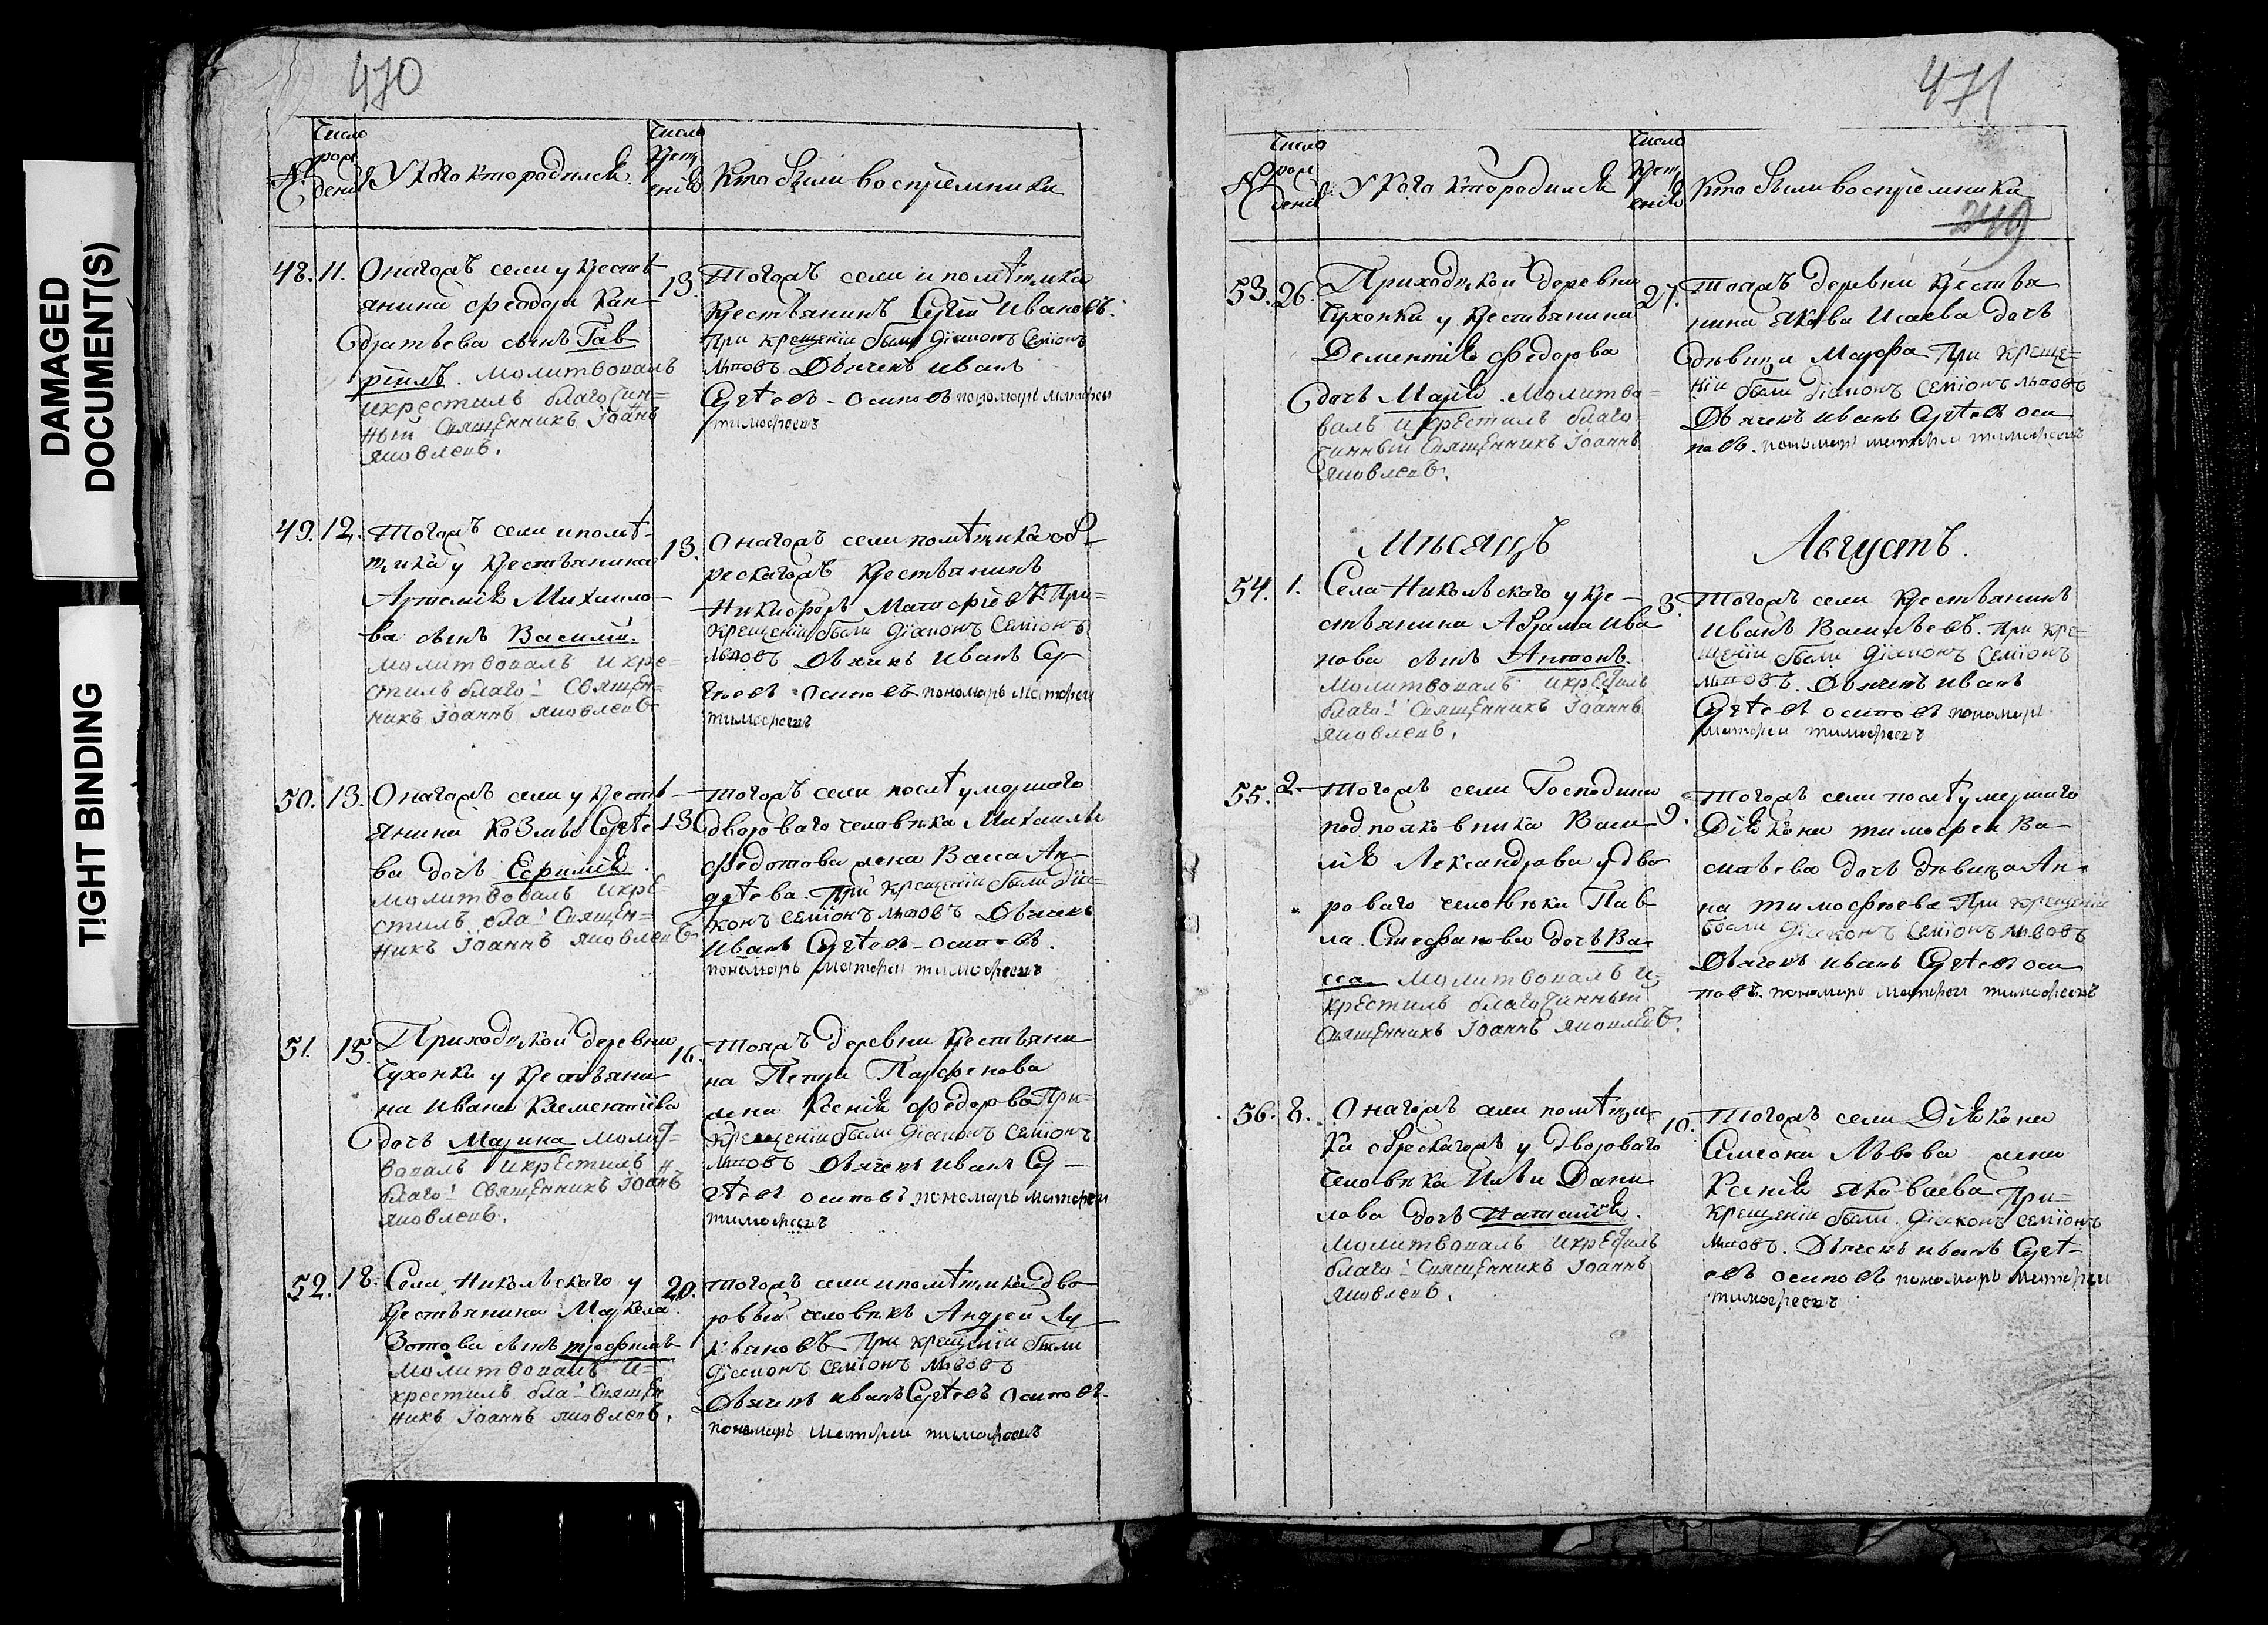 DAMAGED
DOCUMENT(S)
TIGHT BINDING
470
№
Число рож дения
У кого кто родился.
Число крещ ения
Кто были восприемники
48. 11.
Онагожъ села у крестъ
янина Феодора Кан
дратьева сынъ Гав
риилъ. Молитвовалъ
и крестилъ благочин=
ный Священникъ Іоаннъ
Яковлевъ.
13.
Тогожъ села и помѣщика
крестьянинъ Сергій Ивановъ.
При крещеніи были діаконъ Семіонъ
Львовъ Дьячекъ Иванъ
Сергѣевъ Осиповъ пономарь Матфеи
тимофеевъ
49. 12.
Тогожъ села и помѣ-
щика у крестьянина
Артемія Михаило-
ва сынъ Василій.
молитвовалъ и кре=
стилъ благо! Священ=
никъ Іоаннъ Яковлевъ
13.
Онагожъ села помѣщика об
рескагожъ крестьянинъ
Никифоръ Матфіевъ. При=
крещеніи были діаконъ Семіонъ
Львовъ Дьячекъ Иванъ Сер
гѣевъ Осиповъ пономарь Матфеи
тимофеевъ
50. 13.
Онагожъ села у крестъ
янина Козмы Сергѣе
ва дочь Евфимія.
молитвовалъ и кре=
стилъ бла! Священ=
никъ Іоаннъ Яковлевъ
13.
Тогожъ села послѣ умершаго
двороваго человѣка Михаилы
Федотова жена Васса Ан
дрѣева. При крещеніи были діа=
конъ Семіонъ Львовъ Дьячекъ
Иванъ Сергѣевъ Осиповъ.
пономарь Матфеи тимофеевъ
51. 15.
Приходской деревни
Чухонки у крестьяни
на Ивана Клементіева
дочь Марина молит=
вовалъ и крестилъ
благо! Священникъ Іоаннъ
Яковлевъ.
16.
Тояжъ деревни крестьяни
на Петра Парфенова
жена Ксенія Федорова При=
крещеніи были діаконъ Семіонъ
Львовъ Дьячекъ Иванъ Сер
гѣевъ Осиповъ пономарь Матфеи
тимофеевъ
52. 18.
Села Никольскаго у
крестьянина Маркела
Зотова сынъ трофимъ
молитвовалъ и=
крестилъ бла! Священ
никъ Іоаннъ Яковлевъ.
20.
Тогожъ села и помѣщика дво
ровый человѣкъ Андреи Лу
кьяновъ При крещеніи были
діаконъ Семіонъ Львовъ
Дьячекъ Иванъ Сергѣевъ Осиповъ.
пономарь Матфеи тимофеевъ
471
№
Число рож дения
У кого кто родился
Число крещ ения
Кто были восприемники
249
53. 26.
Приходской деревни
Чухонки у крестьянина
Дементія Федорова
дочь Марія Молитво=
валъ и крестилъ благо
чинный Священникъ Іоаннъ
Яковлевъ.
27.
Тояжъ деревни крестья
нина Якова Исаева дочь
дѣвица Марфа При креще=
ніи были діаконъ Семіонъ Львовъ
Дьячекъ Иванъ Сергѣевъ Оси
повъ. пономарь Матфеи тимофеевъ
Мѣсяцъ Августъ.
54. 1.
Села Никольскаго у кре
стьянина Абрама Ива
нова сынъ Антонъ.
молитвовалъ и крестилъ
благо! Священникъ Іоаннъ
Яковлевъ.
3.
Тогожъ села крестьянинъ
Иванъ Васильевъ. При кре=
щеніи были діаконъ Семіонъ
Львовъ. Дьячекъ Иванъ
Сергѣевъ Осиповъ пономарь
Матфеи тимофеевъ
55. 2.
Тогожъ села Господина
подполковника Васи
лія Лександрова у дво
роваго человѣка Пав
ла Стефанова дочь Ва
сса Молитвовалъ и=
крестилъ благочинный
Священникъ Іоаннъ Яковлевъ.
9.
Тогожъ села послѣ умершаго
Діякона тимофея Ва
сильева дочь дѣвица Ан
на тимофѣева При крещеніи
были діаконъ Семіонъ Львовъ
Дьячекъ Иванъ Сергѣевъ Оси
повъ. пономарь Матфеи тимофеевъ
56. 8.
Онагожъ села помѣщи
ка обрескагожъ у дворовaго
человѣка Ильи Дани
лова дочь Наталія.
молитвовалъ и крестилъ
благо! Священникъ Іоаннъ
Яковлевъ.
10.
Тогожъ села Діякона
Симеона Львова жена
Ксенія Яковлева При=
крещеніи были діаконъ Семіонъ
Львовъ. Дьячекъ Иванъ Сергѣ-
евъ Осиповъ пономарь Матфеи
тимофеевъ